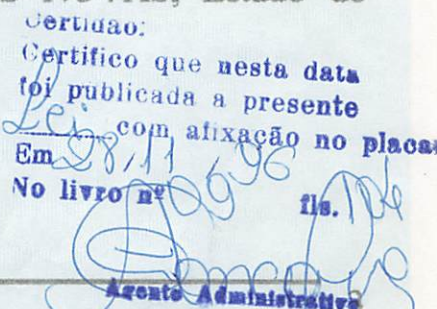 Estado de
Certidão:
Certifico que nesta data
foi publicada a presente
Lei com afixação no placa
Em 28/11/96
No livro nº 006 fls.
Agente Administrativo